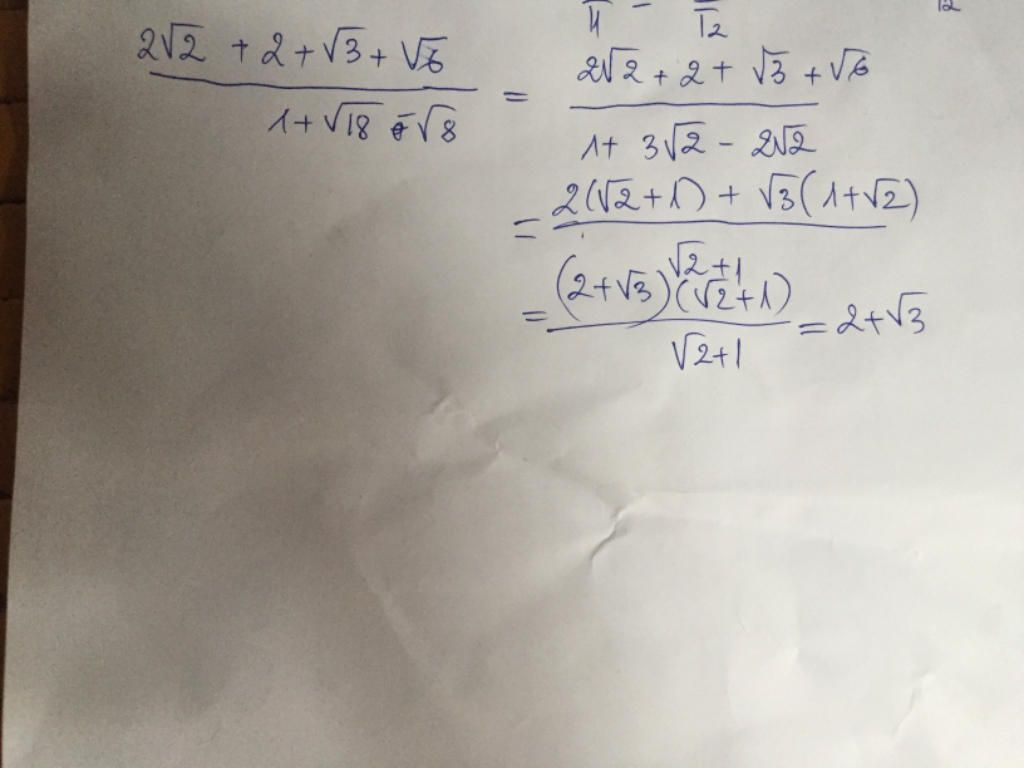 11 - 12 12
2√2 + 2 + √3 + √6 / 1 + √18 - √8 = 2√2 + 2 + √3 + √6 / 1 + 3√2 - 2√2
= 2(√2 + 1) + √3(1 + √2) / √2 + 1
= (2 + √3)(√2 + 1) / √2 + 1 = 2 + √3